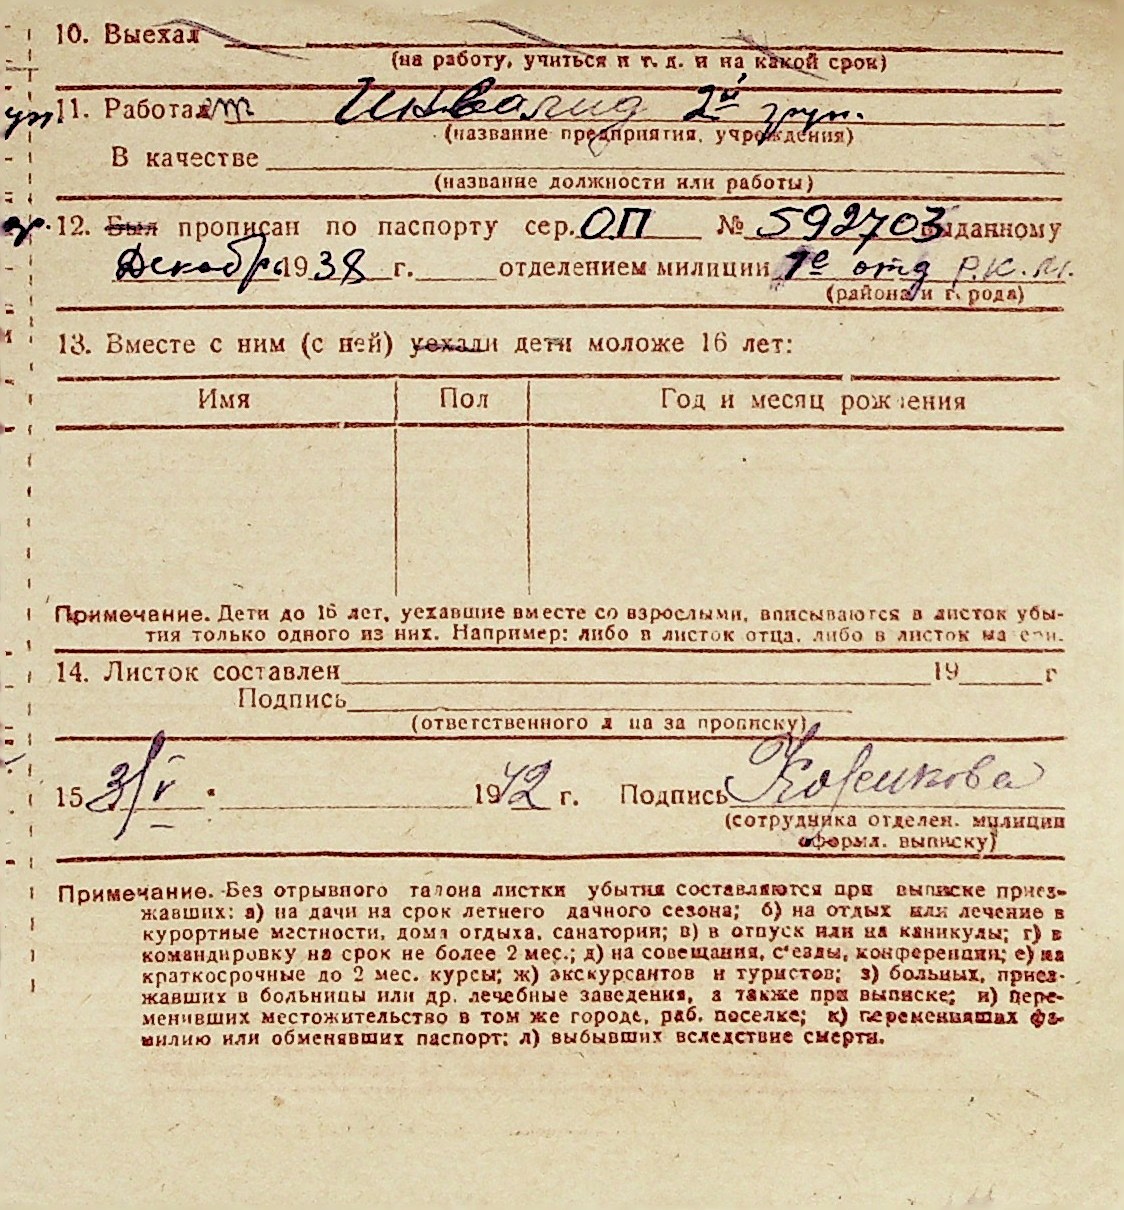 10. Выехал
(на работу, учиться и т. д. и на какой срок)
уп. 11. Работает Инвалид 2й груп.
(название предприятия, учреждения)
В качестве
(название должности или работы)
гр. 12. Был прописан по паспорту сер. ОП № 592703 выданному
Декабрь 1938 г. отделением милиции 1е отд Р.К.М.
(района и города)
13. Вместе с ним (с ней) уехали дети моложе 16 лет:
Имя Пол Год и месяц рождения
Примечание. Дети до 16 лет, уехавшие вместе со взрослыми, вписываются в листок убы-
тия только одного из них. Например: либо в листок отца, либо в листок матери.
14. Листок составлен 19 г
Подпись
(ответственного лица за прописку)
15 31/V 1942 г. Подпись
(сотрудника отделен. милиции
оформл. выписку)
Примечание. Без отрывного талона листки убытия составляются при выписке приез-
жавших: а) на дачи на срок летнего дачного сезона; б) на отдых или лечение в
курортные местности, дома отдыха, санатории; в) в отпуск или на каникулы; г) в
командировку на срок не более 2 мес.; д) на совещания, с'езды, конференции; е) на
краткосрочные до 2 мес. курсы; ж) экскурсантов и туристов; з) больных, приез-
жавших в больницы или др. лечебные заведения, а также при выписке; и) пере-
менивших местожительство в том же городе, раб. поселке; к) переменивших фа-
милию или обменявших паспорт; л) выбывших вследствие смерти.